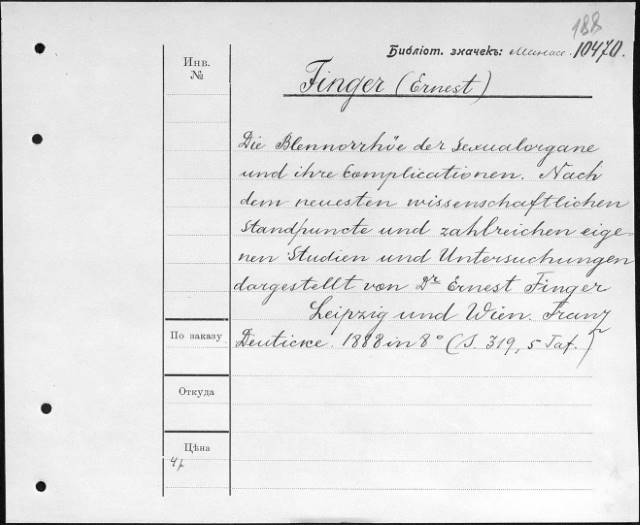 188
Библіот. значекъ: Манас. 10470.
Инв.
№
Finger (Ernest)
Die Blennorrhöe der Sexualorgane
und ihre Complicationen. Nach
dem neuesten wissenschaftlichen
Standpuncte und zahlreichen eige-
nen Studien und Untersuchungen
dargestellt von Dr Ernest Finger
Leipzig und Wien. Franz
По заказу
Deuticke. 1888 in 8° (S. 319, 5 Taf.)
Откуда
Цѣна